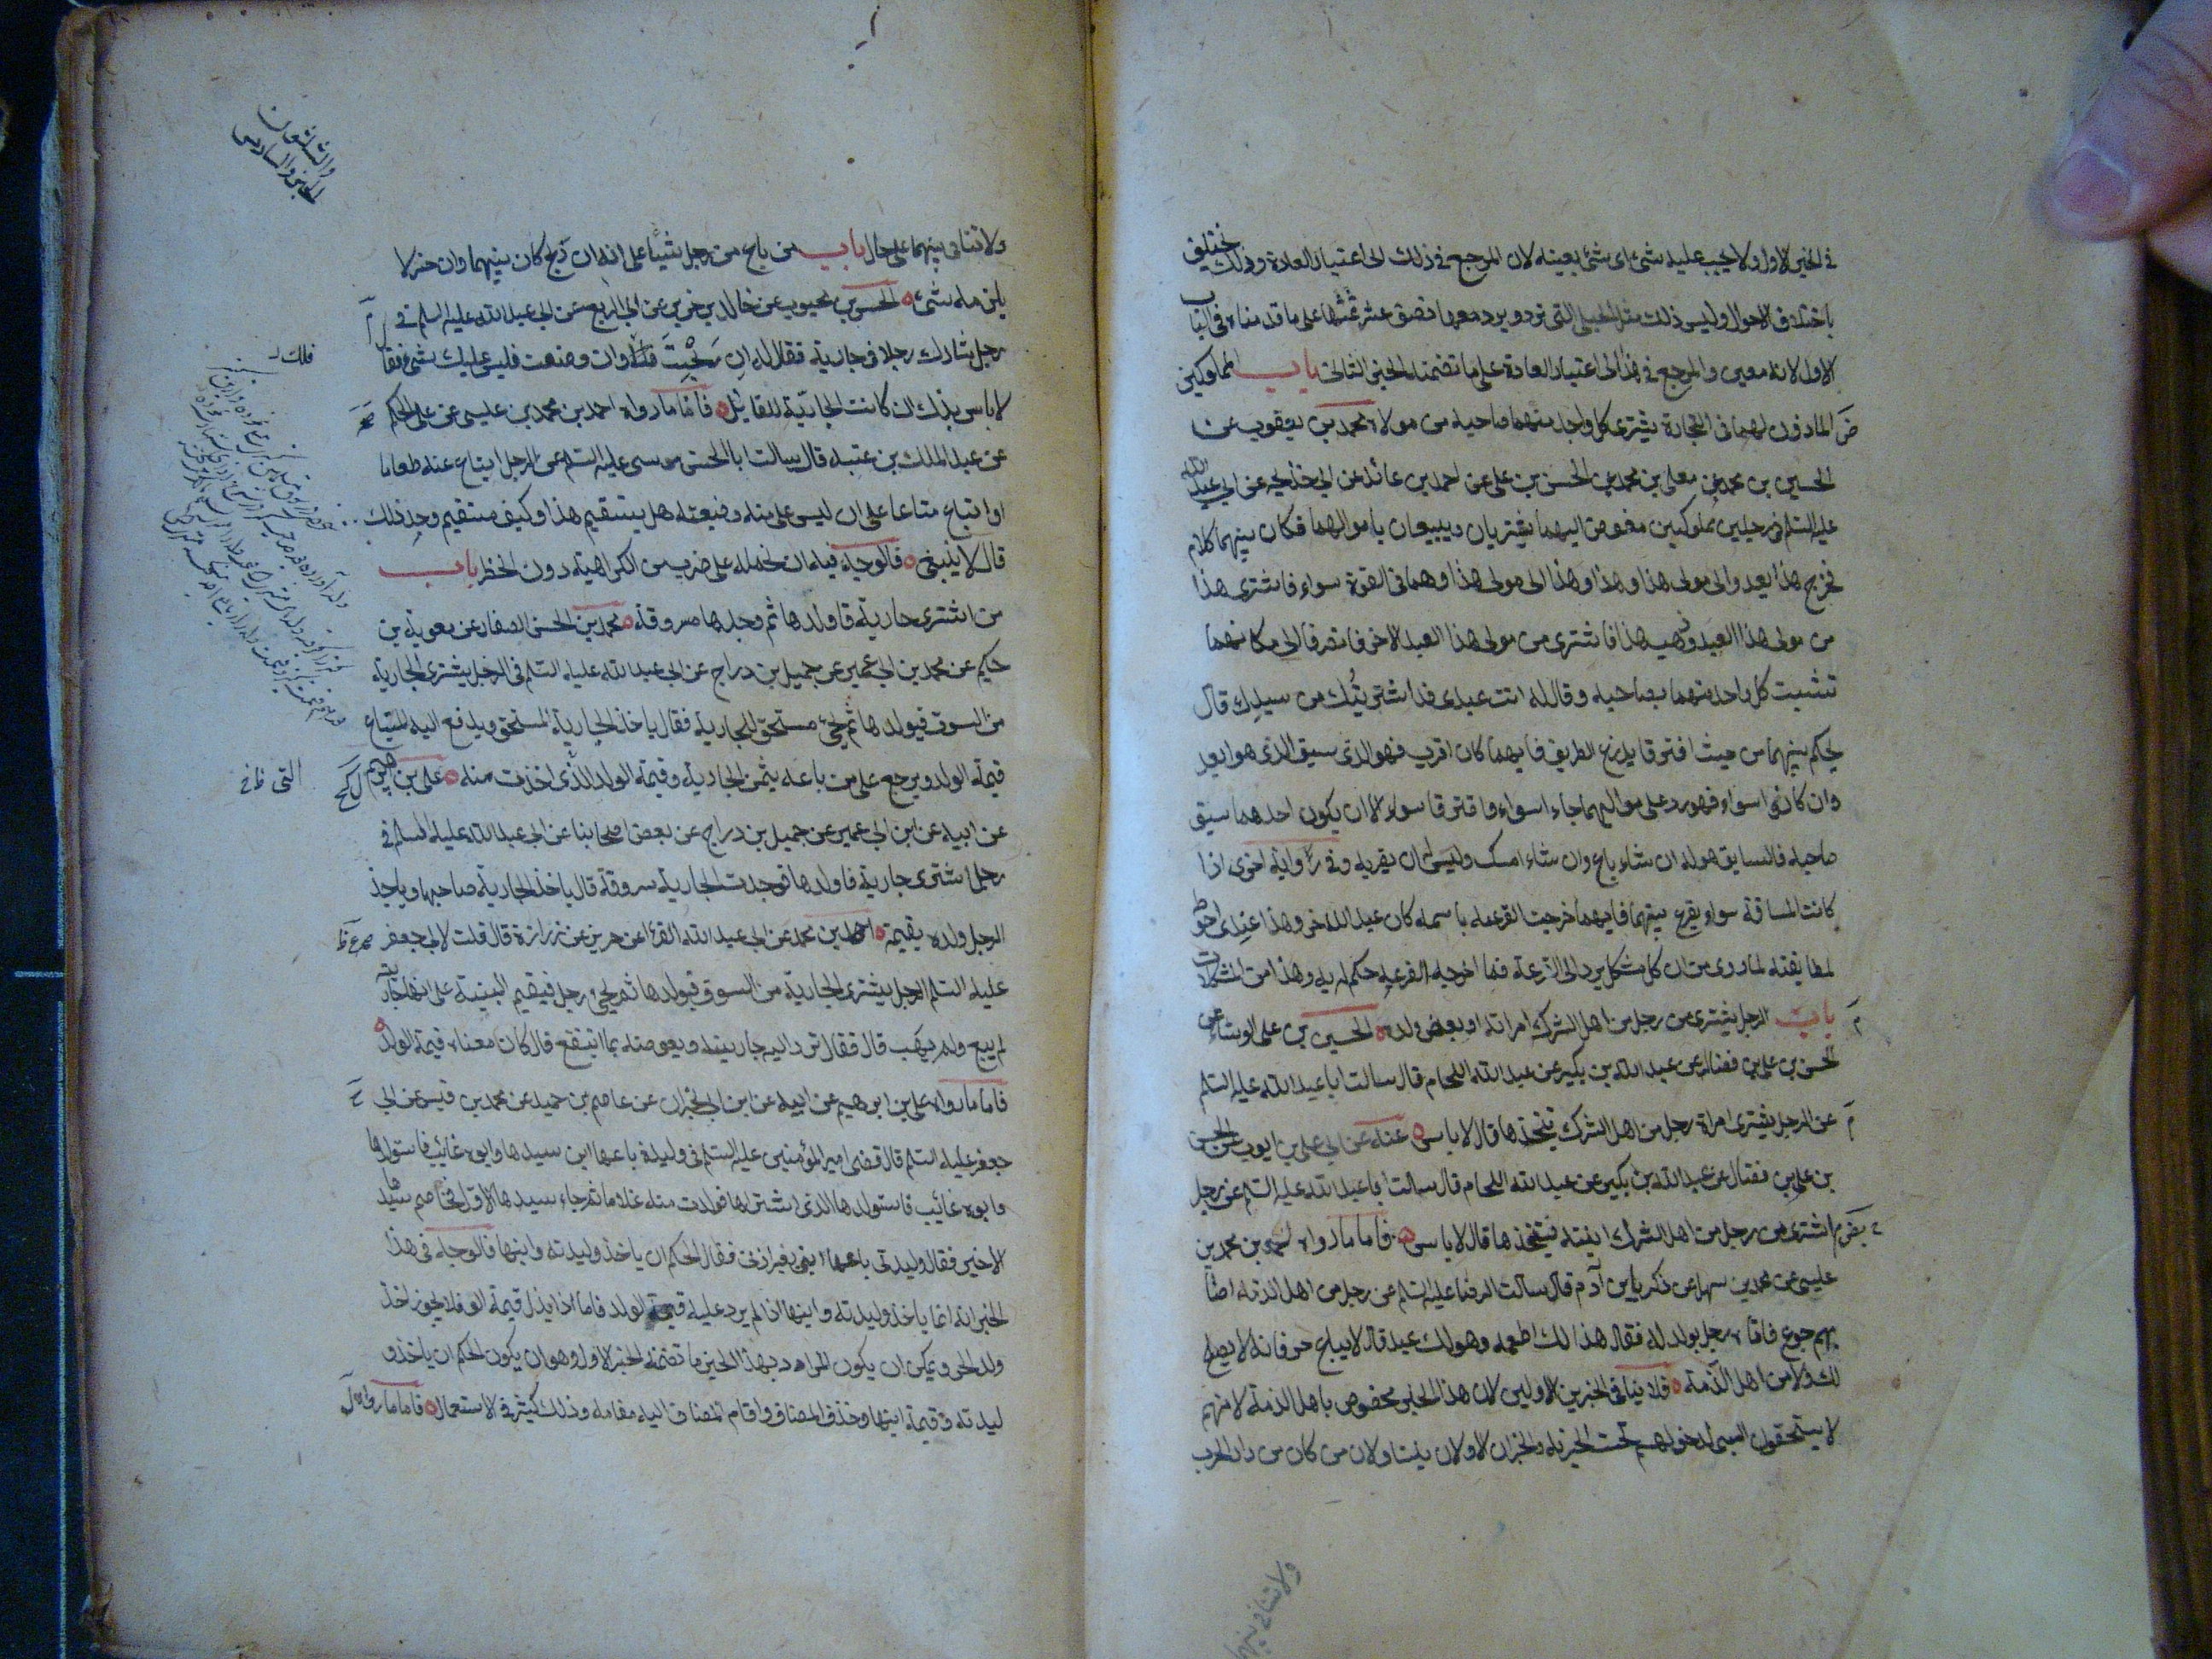 في الخبر الاول ولا يجب عليه شئ اى شئ بعينه لان المرجع في ذلك الى اعتبار العادة وذلك يختلف
باختلاف الاحوال وليس ذلك مثل الحبلى التى ترد ويرد معها نصف عشر ثمنها على ما قدمناه في الباب
الاول لانه معين والمرجع في هذا الى اعتبار العادة على ما تضمنه الخبر الثالث باب المملوكين
المادون لهما في التجارة يشترى كل واحد منهما صاحبه من مولاه محمد بن يعقوب عن
الحسين بن محمد عن معلى بن محمد عن الحسن بن على عن احمد بن عائذ عن ابي خديجه عن ابي عبد الله
عليه السلم في رجلين مملوكين مفوض اليهما يشتريان ويبيعان باموالهما فكان بينهما كلام
فخرج هذا يعدو الى مولى هذا وهذا الى مولى هذا وهما في القوة سواء فاشترى هذا
من مولى هذا العبد وذهب هذا فاشترى من مولى هذا العبد الاخر فانصرفا الى مكانهما
تشبث كل واحد منهما بصاحبه وقال له انت عبدى قد اشتريتك من سيدك قال
يحكم بينهما من حيث افترقا يذرع الطريق فايهما كان اقرب فهو الذى سبق الذى هو ابعد
وان كانا سواء فهو رد على مواليهما جاءا سواء وافترقا سواء الا ان يكون احدهما سبق
صاحبه فالسابق هو له ان شاء باع وان شاء امسك وليس له ان يضربه وفي رواية اخرى اذا
كانت المسافة سواء يقرع بينهما فايهما خرجت القرعه باسمه كان عبد الاخر وهذا عندى احوط
لمطابقته لما روى من ان كل مشكل يرد الى القرعة فما اخرجه القرعه حكم له به وهذا من المشكلات
باب الرجل يشترى من رجل من اهل الشرك امراته او بعض ولده الحسين بن على الوشاء عن
الحسن بن على بن فضال عن عبد الله بن بكير عن عبد الله اللحام قال سالت ابا عبد الله عليه السلم
عن الرجل يشترى امراة رجل من اهل الشرك يتخذها قال لا باس عنه عن ابي على بن ايوب عن الحسن
بن على بن فضال عن عبد الله بن بكير عن عبد الله اللحام قال سالت ابا عبد الله عليه السلم عن رجل
اشترى من رجل من اهل الشرك ابنته فيتخذها قال لا باس فاما ما رواه احمد بن محمد بن
عليسى عن محمد بن سهل عن ذكريا بن آدم قال سالت الرضا عليه السلم عن رجل من اهل الذمه اصا
بهم جوع فاتاه رجل بولد له فقال هذا لك اطعمه وهو لك عبد قال لا يباع حر فانه لا يصلح
لك ولا من اهل الذمة فلا ينافي الخبرين الاولين لان هذا الخبر مخصوص باهل الذمة لانهم
لا يستحقون السبى لدخولهم تحت الجزيه والخبران الاولان يتناولان من كان من دار الحرب
ولا تنافي بينهما
والثلثون
السادس
ولا تنافي بينهما على حال باب من باع من رجل شيئا على انه ان ربح كان بينهما وان خسر لا
يلزمه شئ الحسن بن محبوب عن خالد بن حريز عن ابي الربيع عن ابي عبد الله عليه السلم في
رجل شارك رجلا في جارية فقال له ان ربحت فلك وان وضعت فليس عليك شئ فقال
لا باس بذلك ان كانت الجارية للقائل فاما ما رواه احمد بن محمد بن عليسى عن على الحكم
عن عبد الملك بن عتبه قال سالت ابا الحسن موسى عليه السلم عن الرجل ابتاع عنه طعاما
او ابتاع متاعا على ان ليس على منه وضيعته هل يستقيم هذا وكيف مستقيم وجد ذلك
قال لا ينبغي فالوجه فيه ان نحمله على ضرب من الكراهية دون الحظر باب
من اشترى جارية فاولدها ثم وجدها مسروقة محمد بن الحسن الصفار عن معوية بن
حكيم عن محمد بن ابي عمير عن جميل بن دراج عن ابي عبد الله عليه السلم في الرجل يشترى الجارية
من السوق فيولدها ثم يجئ مستحق للجارية فقال ياخذ الجارية المستحق ويدفع اليه المبتاع
قيمة الولد ويرجع على من باعه بثمن الجارية وقيمة الولد الذى اخذت منه على بن ابرهيم
عن ابيه عن ابن ابي عمير عن جميل بن دراج عن بعض اصحابنا عن ابي عبد الله عليه السلم في
رجل اشترى جارية فاولدها فوجدت الجارية مسروقة قال ياخذ الجارية صاحبها وياخذ
الرجل ولده بقيمة احمد بن محمد عن ابي عبد الله الفراء عن حريز عن زرارة قال قلت لابي جعفر
عليه السلم الرجل يشترى الجارية من السوق فيولدها ثم يجئ رجل فيقيم البينة على انها جاريته
لم يبع ولم يهب قال فقال ترد اليه جاريته ويعوضه بما انتفع قال كان معناه قيمة الولد
فاما ما رواه على بن ابرهيم عن ابيه عن ابن ابي نجران عن عاصم بن حميد عن محمد بن قيس عن ابي
جعفر عليه السلم قال قضى امير المؤمنين عليه السلم في وليدة باعها ابن سيدها وابوه غائب فاستولدها
وابوه غائب فاستولدها الذى اشتراها فولدت منه غلاما ثم جاء سيدها الاول فخاصم سيدها
الاخير فقال وليدتى باعها ابنى بغير اذنى فقال الحكم ان ياخذ وليدته وابنها فالوجه في هذا
الخبر انه انما ياخذ وليدته وابنها اذا لم يرد عليه قيمة الولد فاما اذا بذل قيمة الولد فلا يجوز اخذ
ولد الحر ويمكن ان يكون المراد بهذا الخبر ما تضمنه الخبر الاول وهو ان يكون الحكم ان ياخذ و
ليدته وقيمة ابنها وحذف المضاف واقام المضاف اليه مقامه وذلك كثير في الاستعمال فاما ما رواه